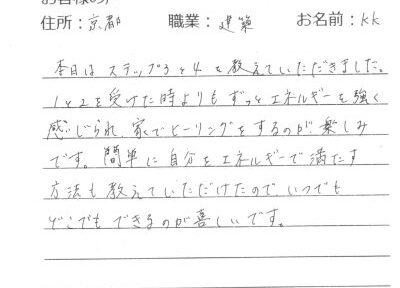 住所：京都 職業：建築 お名前：KK
本日は ステップ3と4を教えていただきました。
1と2を受けた時よりもずっとエネルギーを強く
感じられ、家でヒーリングをするのが楽しみ
です。簡単に自分をエネルギーで満たす
方法も教えていただけたので、いつでも
どこでもできるのが喜しいです。